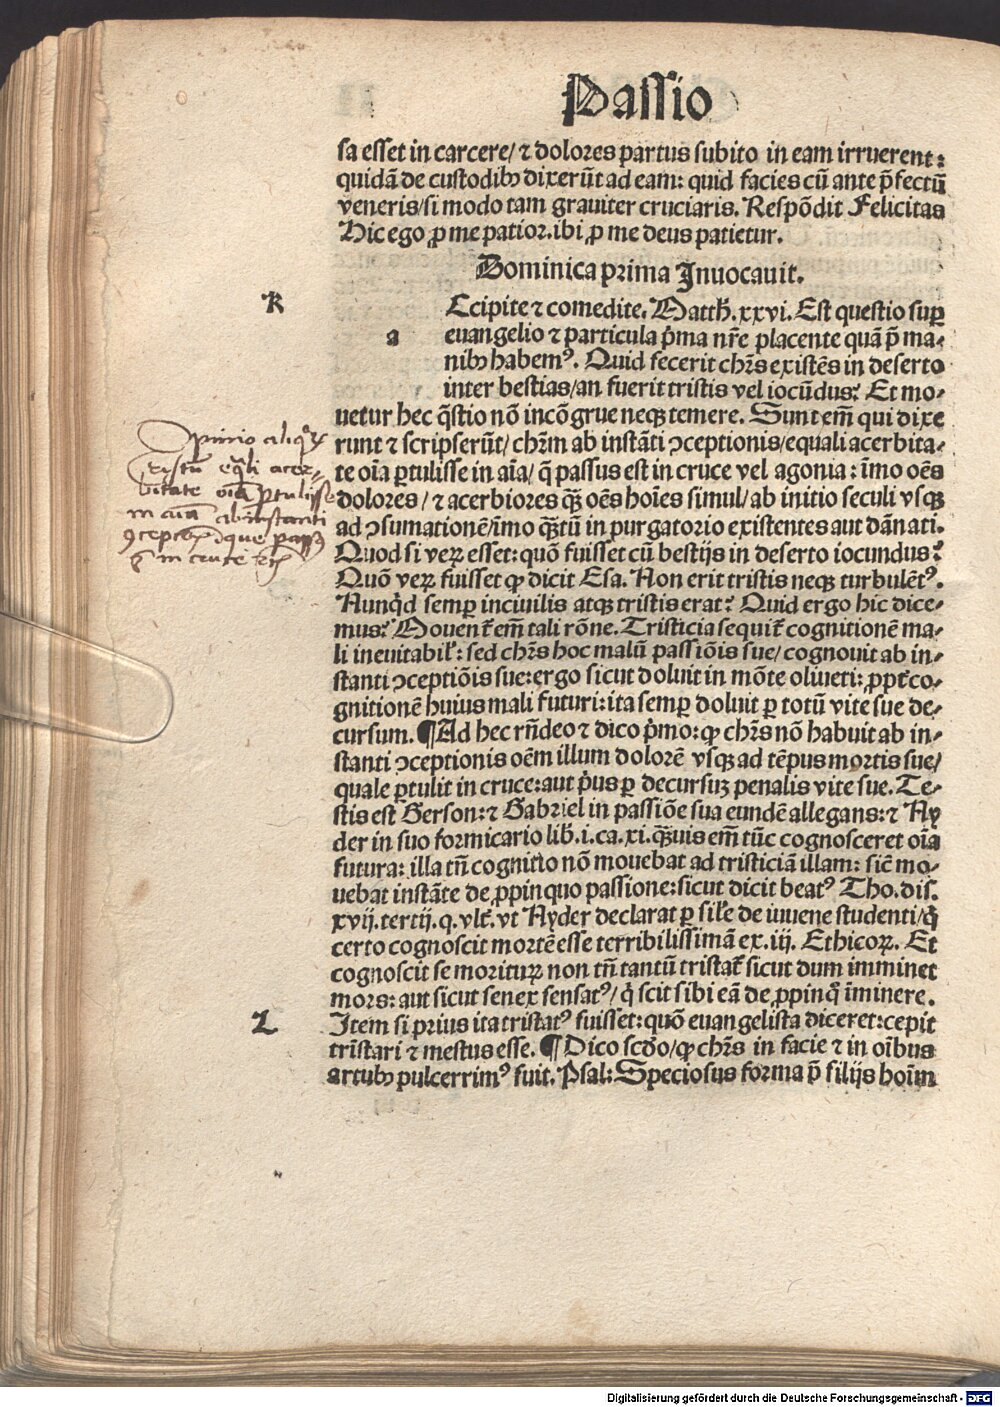 Passio
sa esset in carcere/ ⁊ dolores partus subito in eam irruerent:
quidã de custodibꝰ dixerũt ad eam: quid facies cũ ante p̃fectũ
veneris/si modo tam grauiter cruciaris. Respõdit Felicitas
Hic ego ꝓ me patior. ibi ꝓ me deus patietur.
Dominica prima Inuocauit.
K
Ccipite ⁊ comedite. Matth̃. xxvi. Est questio suꝑ
a
euangelio ⁊ particula p̾ma nr̃e placente quã p̃ ma-
nibꝰ habemꝰ. Quid fecerit chr̃s existẽs in deserto
inter bestias/an fuerit tristis vel iocũdus? Et mo-
uetur hec q̃stio nõ incõgrue neqꝫ temere. Sunt em̃ qui dixe
runt ⁊ scripserũt/ chr̃m ab instãti ꝯceptionis/equali acerbita-
te oĩa ꝑtulisse in aĩa/ q̃ passus est in cruce vel agonia: ĩmo oẽs
dolores/ ⁊ acerbiores qꝫ̃ oẽs hoĩes simul/ab initio seculi vsqꝫ
ad ꝯsumationẽ/ĩmo qꝫ̃tũ in purgatorio existentes aut dãnati.
Quod si veꝝ esset: quõ fuisset cũ bestijs in deserto iocundus?
Quõ veꝝ fuisset qꝙ dicit Esa. Non erit tristis neqꝫ turbulẽtꝰ.
Nunq̾d semꝑ inciuilis atqꝫ tristis erat? Quid ergo hic dice-
mus? Mouent̃ em̃ tali rõne. Tristicia sequit̃ cognitionẽ ma-
li ineuitabil̃: sed chr̃s hoc malũ passiõis sue/ cognouit ab in-
stanti ꝯceptiõis sue: ergo sicut doluit in mõte oliueti: ꝓpt̃ co-
gnitionẽ huius mali futuri: ita semꝑ doluit ꝑ totũ vite sue de-
cursum. ¶Ad hec rñdeo ⁊ dico p̾mo: ꝙ chr̃s nõ habuit ab in-
stanti ꝯceptionis oẽm illum dolorẽ vsqꝫ ad tẽpus mortis sue/
quale ꝑtulit in cruce: aut p̾us ꝑ decursuꝫ penalis vite sue. Te-
stis est Gerson: ⁊ Gabriel in passiõe sua eundẽ allegans: ⁊ Ny
der in suo formicario lib̃. i. ca. xi. qꝫ̃uis em̃ tũc cognosceret oĩa
futura: illa tñ cognitio nõ mouebat ad tristiciã illam: sic̃ mo-
uebat instãte de ꝓpinquo passione: sicut dicit beatꝰ Tho. dis.
xvij. tertij. q. vlt̃. vt Nyder declarat ꝑ sil̃e de iuuene studenti/q̾
certo cognoscit mortẽ esse terribilissimã ex. iij. Ethicoꝝ. Et
cognoscit se morituꝝ non tñ tantũ tristat̃ sicut dum imminet
mors: aut sicut senex sensatꝰ/ q̾ scit sibi eã de ꝓpinq̃ ĩminere.
L
Item si prius ita tristatꝰ fuisset: quõ euangelista diceret: cepit
tristari ⁊ mestus esse. ¶Dico scd̃o/ꝙ chr̃s in facie ⁊ in oĩbus
artubꝰ pulcerrimꝰ fuit. Psal: Speciosus forma p̃ filijs hoĩm
Opinio aliq̃ꝝ
cristũ eq̃li acer-
bitate oĩa ꝑtulisse
ab instanti
in cruce
Digitalisierung gefördert durch die Deutsche Forschungsgemeinschaft - DFG